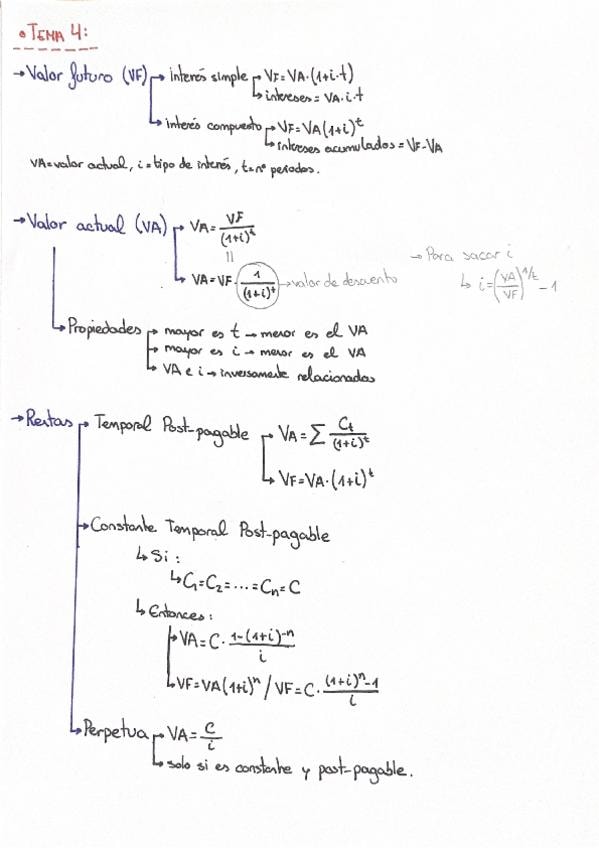 • TEMA 4:
→ Valor futuro (VF) → interés simple → VF = VA·(1+i·t)
↳ intereses = VA·i·t
↳ interés compuesto → VF = VA(1+i)^t
↳ intereses acumulados = VF-VA
VA = valor actual, i = tipo de interés, t = nº periodos.
→ Valor actual (VA) → VA = VF/(1+i)^t
||
↳ VA = VF · 1/(1+i)^t → valor de descuento
→ Para sacar i
↳ i = (VA/VF)^1/t - 1
↳ Propiedades → mayor es t → menor es el VA
→ mayor es i → menor es el VA
↳ VA e i → inversamente relacionados
→ Rentas → Temporal Post-pagable → VA = Σ Ct/(1+i)^t
↳ VF = VA·(1+i)^t
→ Constante Temporal Post-pagable
↳ Si:
↳ C1 = C2 = ... = Cn = C
↳ Entonces:
→ VA = C · 1-(1+i)^-n/i
↳ VF = VA(1+i)^n / VF = C · (1+i)^n-1/i
↳ Perpetua → VA = C/i
↳ solo si es constante y post-pagable.